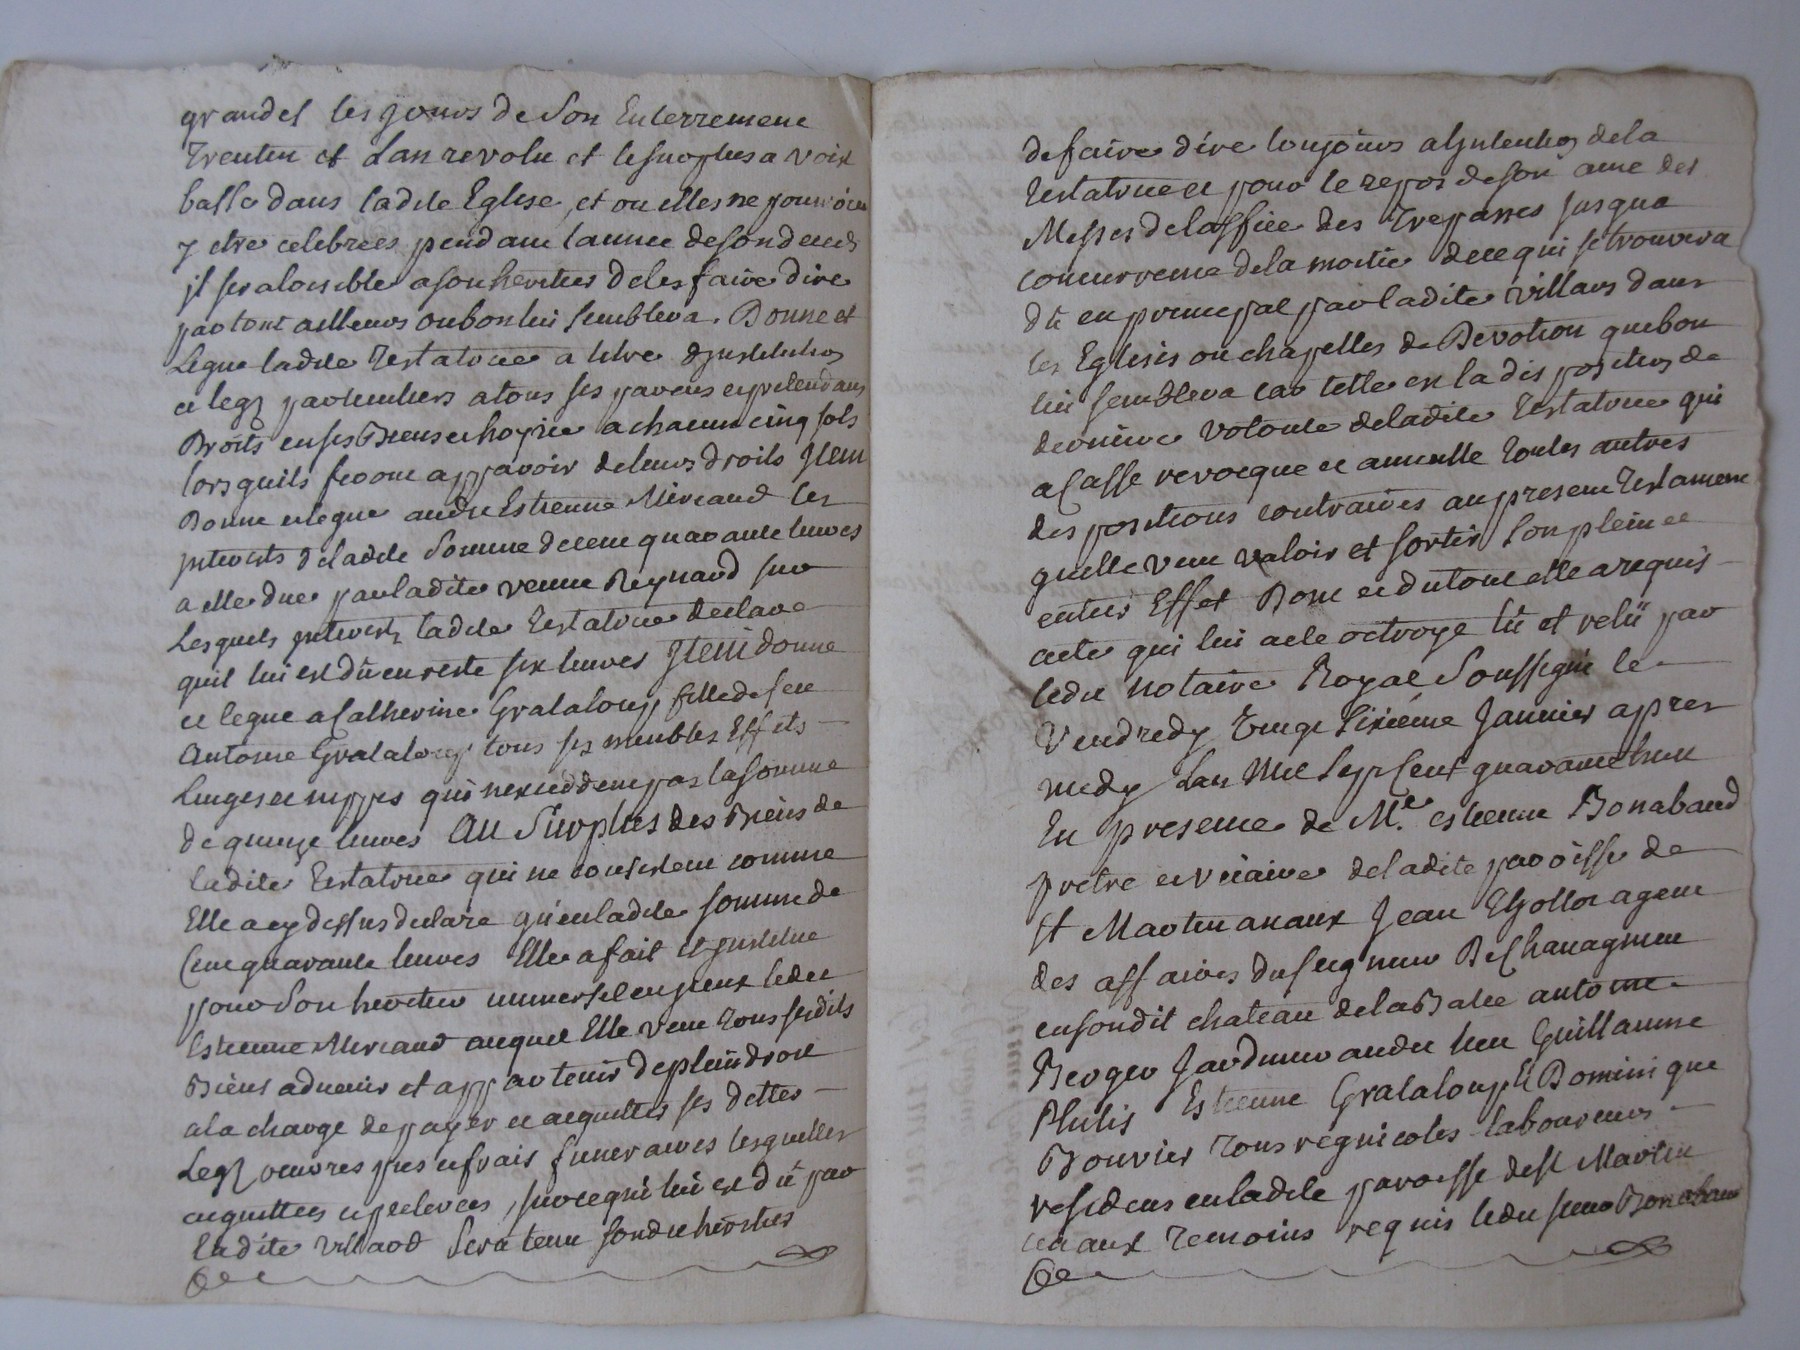 grandes les jours de Son Enterrement
Trentin et Lan revolu et le surplus a voix
basse dans ladite Eglise, et ou elles ne pourroient
y etre celebrées pendant lannee de son deces
jl sera loisible a son heritier de les faire dire
par tout ailleurs ou bon lui semblera. Donne et
Legue ladite Testatrice a titre dJnstitution
et legz particuliers a tous ses parens et pretendans
Droits en ses Biens et hoyrie a chacun cinq sols
lors quils feront apparoir de leurs droits Jtem
Donne et legue audit Estienne Mireaud les
jnterets de ladite Somme de cent quarante livres
a elle due par ladite veuve Reynaud sur
Lesquels jnterets ladite Testatrice declare
quil lui est dû en reste six livres Jtem donne
et legue a Catherine Grataloup fille de feu
Antoine Grataloup tous ses meubles Effets
Linges et nippes qui nexceddent pas la somme
de quinze livres Au Surplus des Biens de
ladite Testatrice qui ne consistent comme
Elle a cy dessus declaré qu'en ladite somme de
Cent quarante livres Elle a fait et jnstitue
pour Son heritier universel en jceux ledit
Estienne Mireaud auquel Elle veut Tous sesdits
Biens advenir et appartenir de plein droit
a la charge de payer et acquitter ses dettes
Legz oeuvres pies et frais funeraires lesquelles
acquittées et prelevées, sur ce qui lui est dû par
ladite Villard Sera tenu sondit heritier
de faire dire toujours a lJntention de la
Testatrice et pour le repos de son ame des
Messes de loffice des Trepasses jusqua
concurrence de la moitié de ce qui se trouvera
dû en principal par ladite Villars dans
les Eglises ou chapelles de Devotion que bon
lui semblera car telle est la disposition de
derniere volonte de ladite Testatrice qui
a Casse revocque et annulle Toutes autres
dispositions contraires au present Testament
quelle veut valoir et sortir Son plein et
entier Effet Dont et du tout elle a requis
acte qui lui a ete octroye lû et relû par
ledit Notaire Royal Soussigné le
Vendredy Vingt Sixiéme Janvier apres
midy Lan Mil Sept Cent quarante huit
En presence de Me. estienne Bonabaud
pretre et vicaire de ladite paroisse de
st Martin anaux Jean agent
des affaires du seigneur De Chanagnieu
en son dit chateau de la Batie antoine
Berger Jardinier audit lieu Guillaume
Philis Estienne Grataloup et Dominique
Bouvier Tous regnicoles laboureurs
residens en ladite paroisse de st Martin
anaux Temoins requis ledit sieur Bonabaud